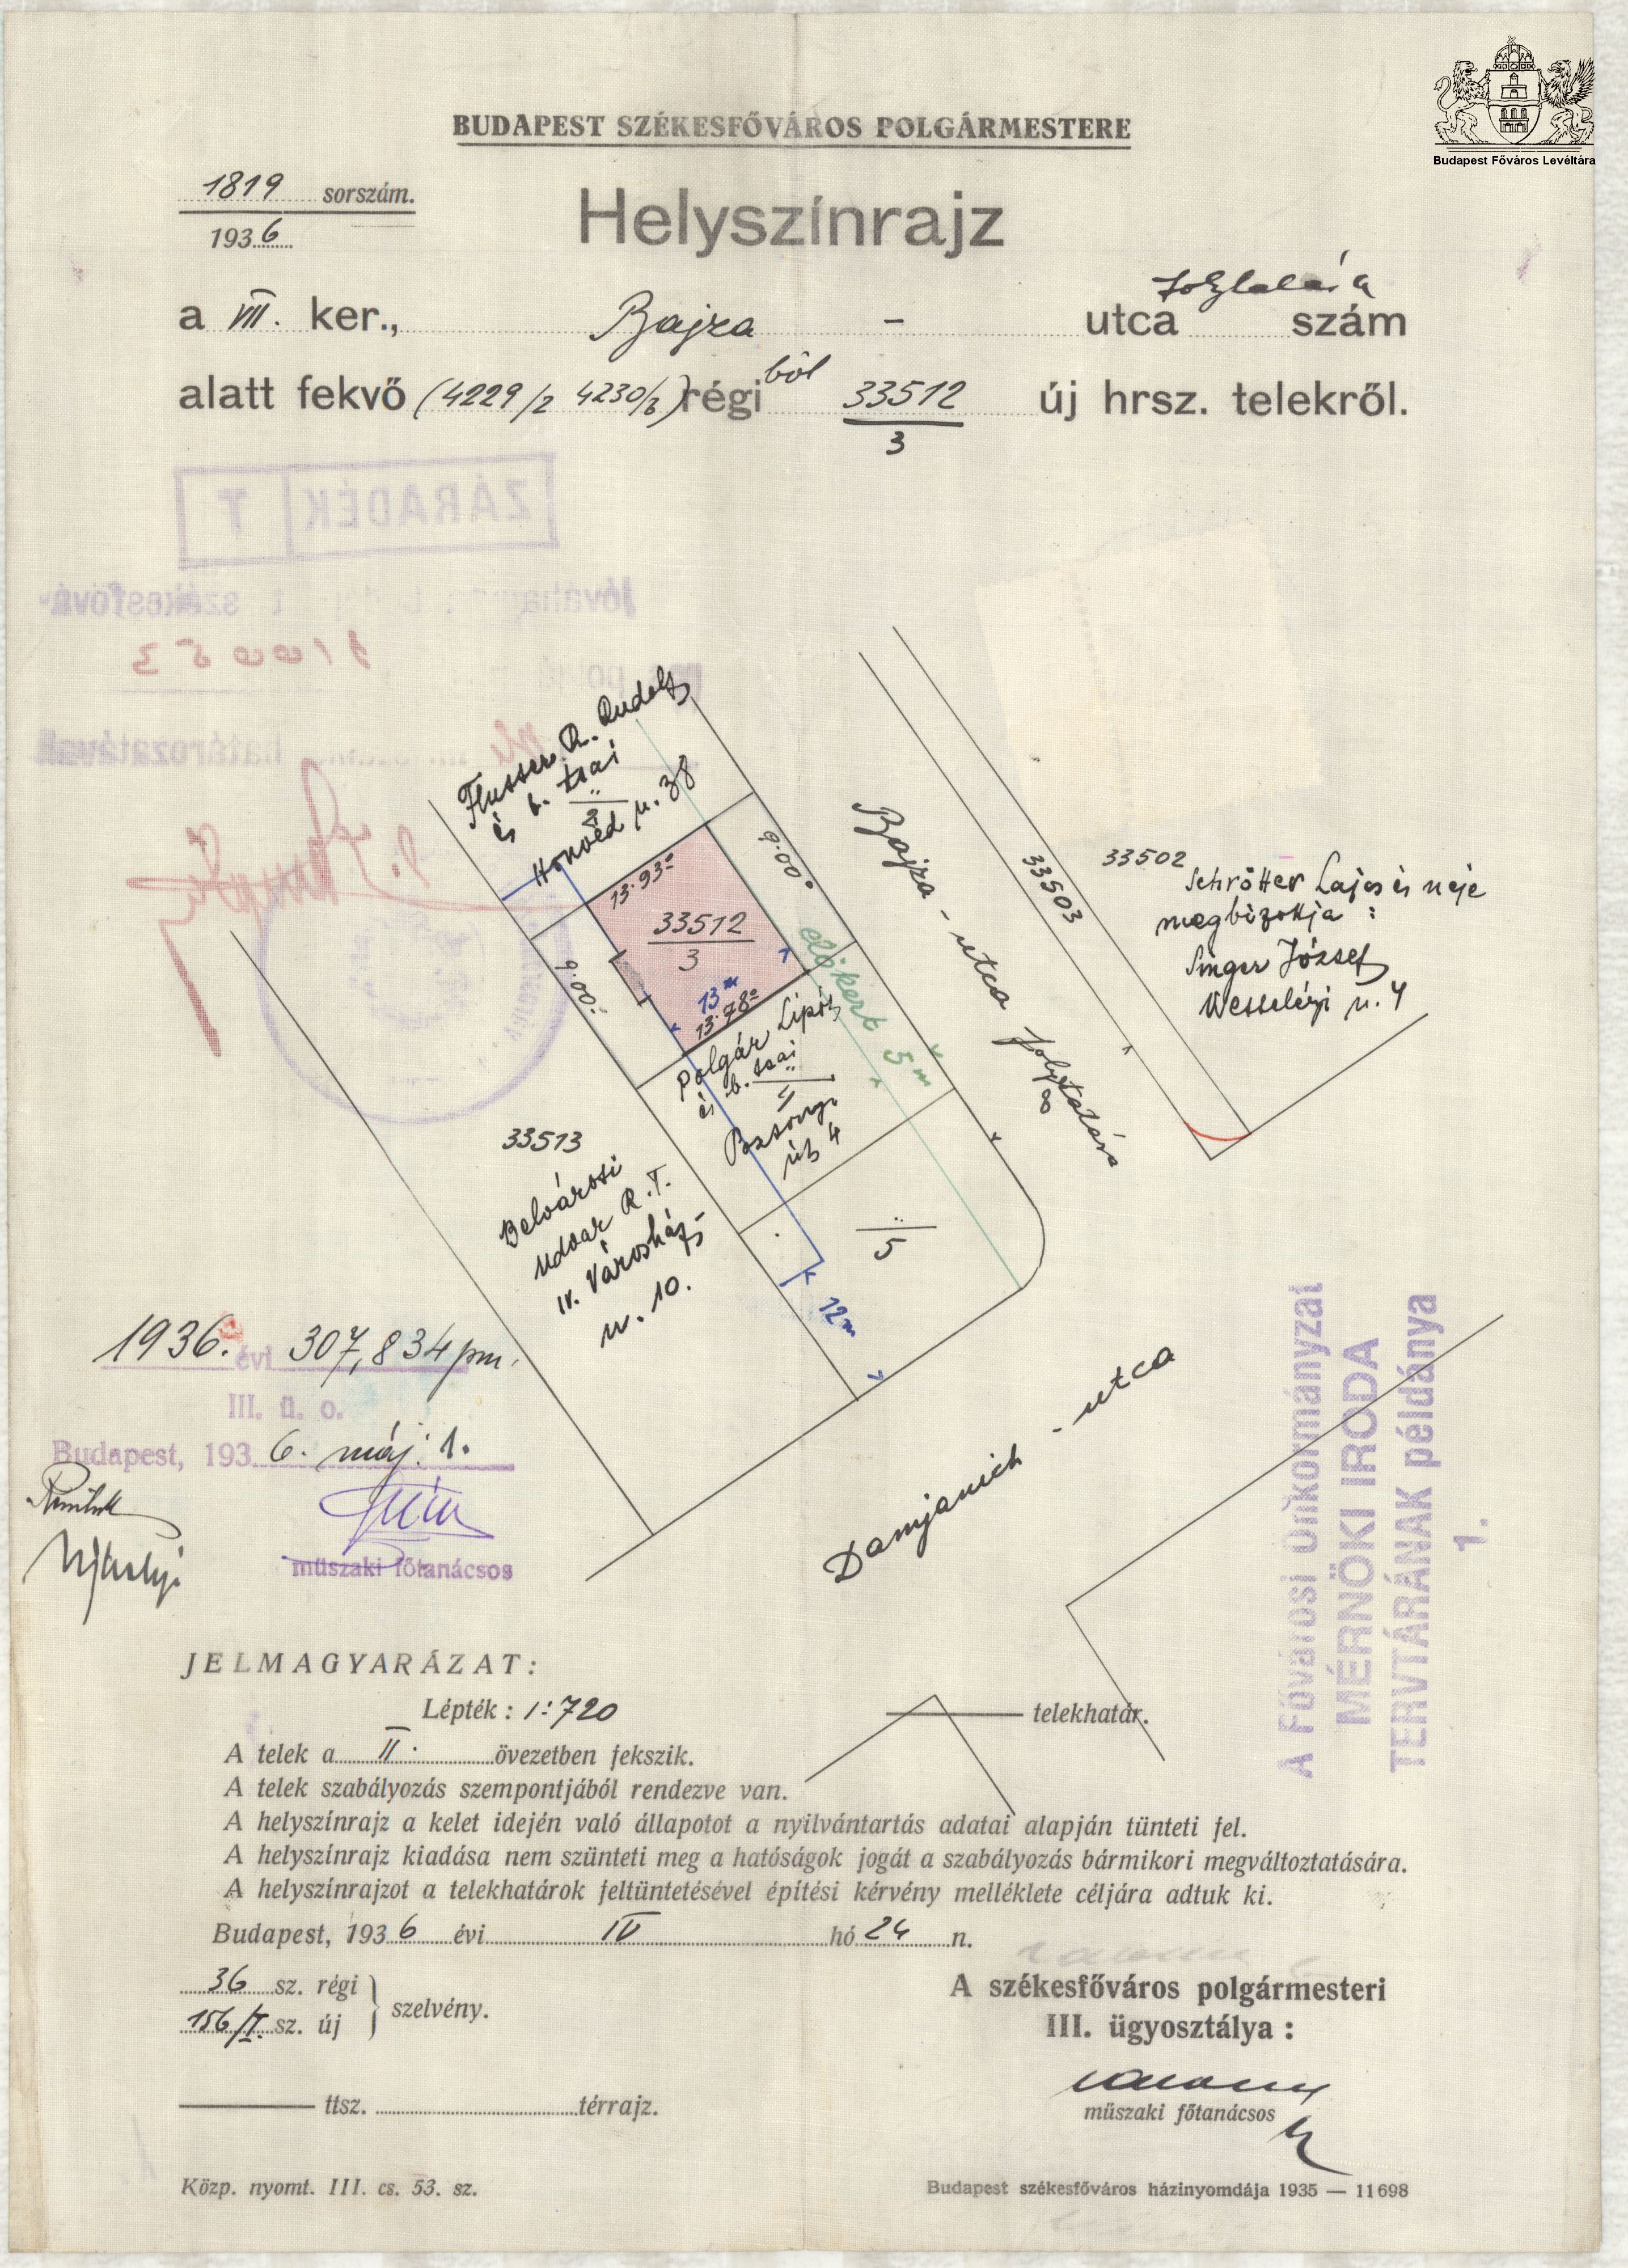 Budapest Főváros Levéltára
BUDAPEST SZÉKESFŐVÁROS POLGÁRMESTERE
1819 sorszám.
1936
Helyszínrajz
folytatása
a VII. ker., Bajza - utca szám
alatt fekvő (4229/2 4230/b) régi ből 33512/3 új hrsz. telekről.
ZÁRADÉK T
Flusser R. Rudolf
és b. tsai
2
Honvéd u. 38
13·93
9·00
33512
3
13m
13·78
9·00
előkert 5m
Polgár Lipót
és b. tsai
4
Pozsonyi
út 4
5
12m
Bajza - utca folytatása
8
33503
33502
Schrötter Lajos és neje
megbizottja :
Singer József
Wesselényi u. 4
33513
Belvárosi
Udvar R.T.
IV. Városház
u. 10.
Damjanich - utca
1936. évi 307,834 pm.
III. ü. o.
Budapest, 1936. máj. 1.
műszaki főtanácsos
A Fővárosi Önkormányzat
MÉRNÖKI IRODA
TERVTÁRÁNAK példánya
1.
JELMAGYARÁZAT:
Lépték : 1:720
telekhatár.
A telek a II. övezetben fekszik.
A telek szabályozás szempontjából rendezve van.
A helyszínrajz a kelet idején való állapotot a nyilvántartás adatai alapján tünteti fel.
A helyszínrajz kiadása nem szünteti meg a hatóságok jogát a szabályozás bármikori megváltoztatására.
A helyszínrajzot a telekhatárok feltüntetésével építési kérvény melléklete céljára adtuk ki.
Budapest, 1936 évi IV hó 24 n.
36 sz. régi
156/I. sz. új
szelvény.
A székesfőváros polgármesteri
III. ügyosztálya :
műszaki főtanácsos
ttsz. térrajz.
Közp. nyomt. III. cs. 53. sz.
Budapest székesfőváros házinyomdája 1935 — 11698